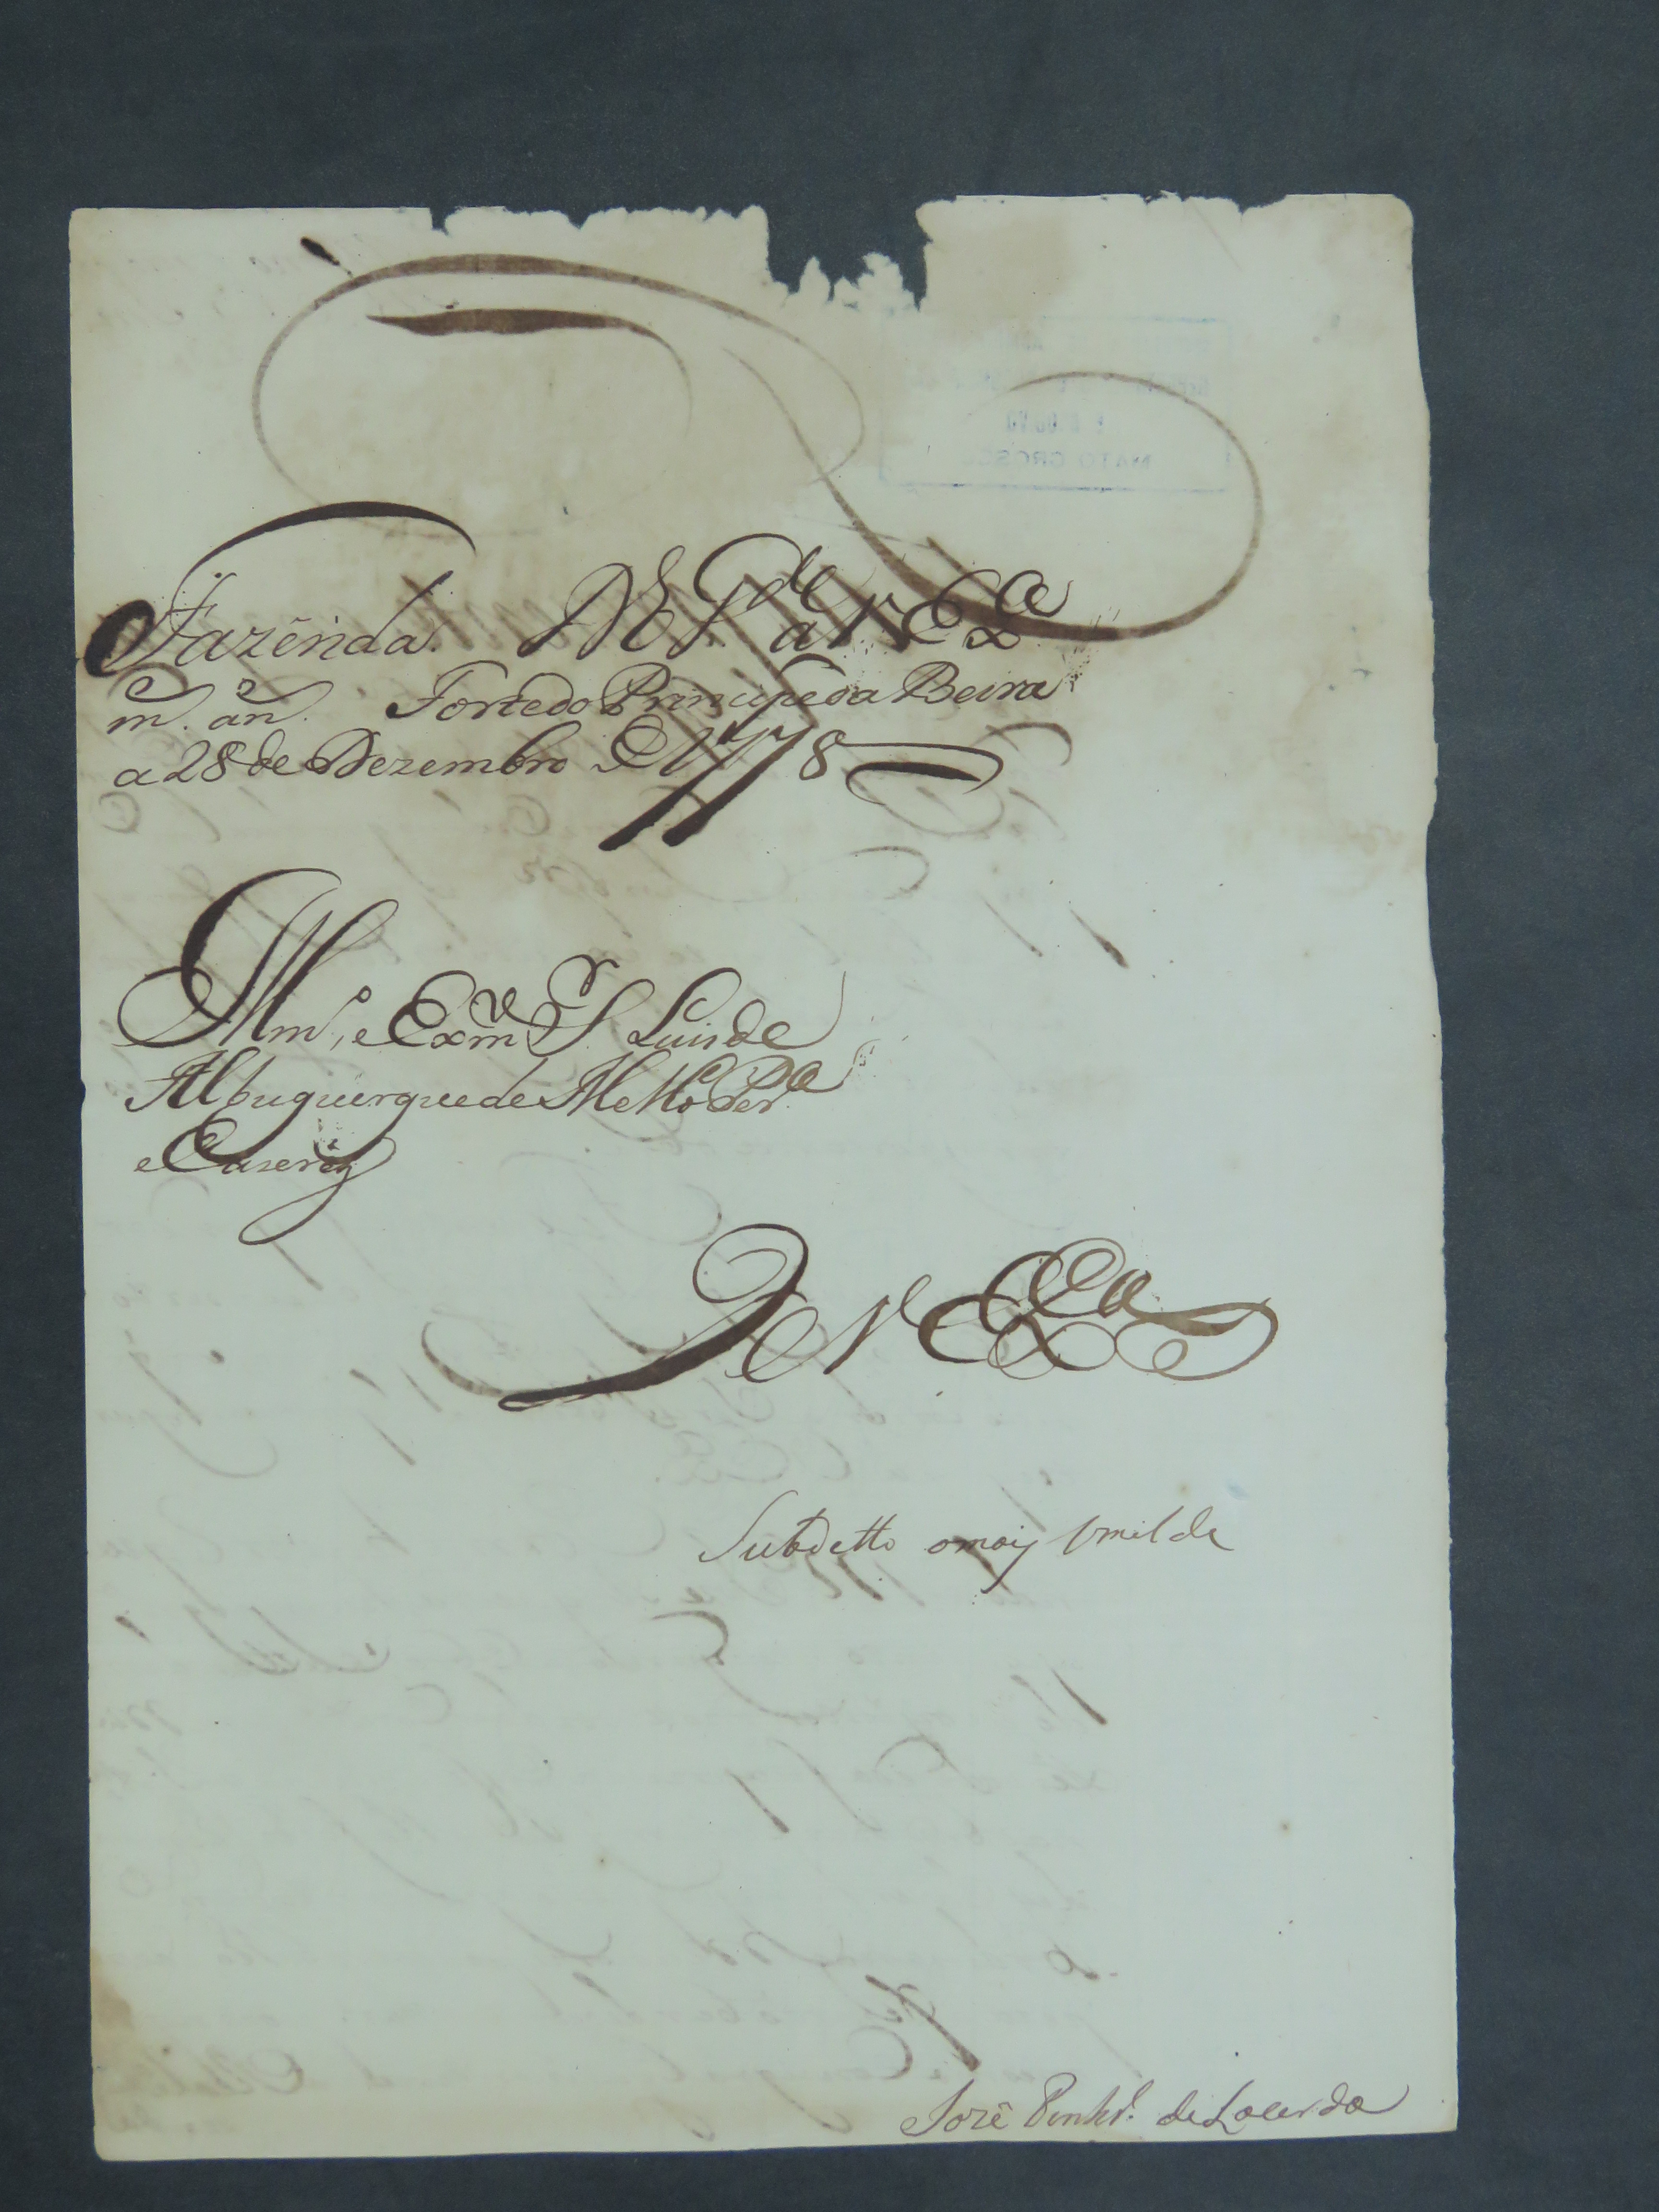 Fazenda. D.s G.de a V Ex.ca
m. an. Forte do Principe da Beira
a 28 de Dezembro D 1778
Illm.o e Exm.o S.r Luis de
Albuquerque de Mello Per.a
e Caserez
De V Ex.ca
Subdetto o maiz Umilde
Jozê Pinhr.o de Lacerda